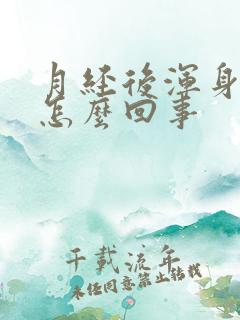 月經後渾身
怎麼回事
千載流年
未经同意禁止转载